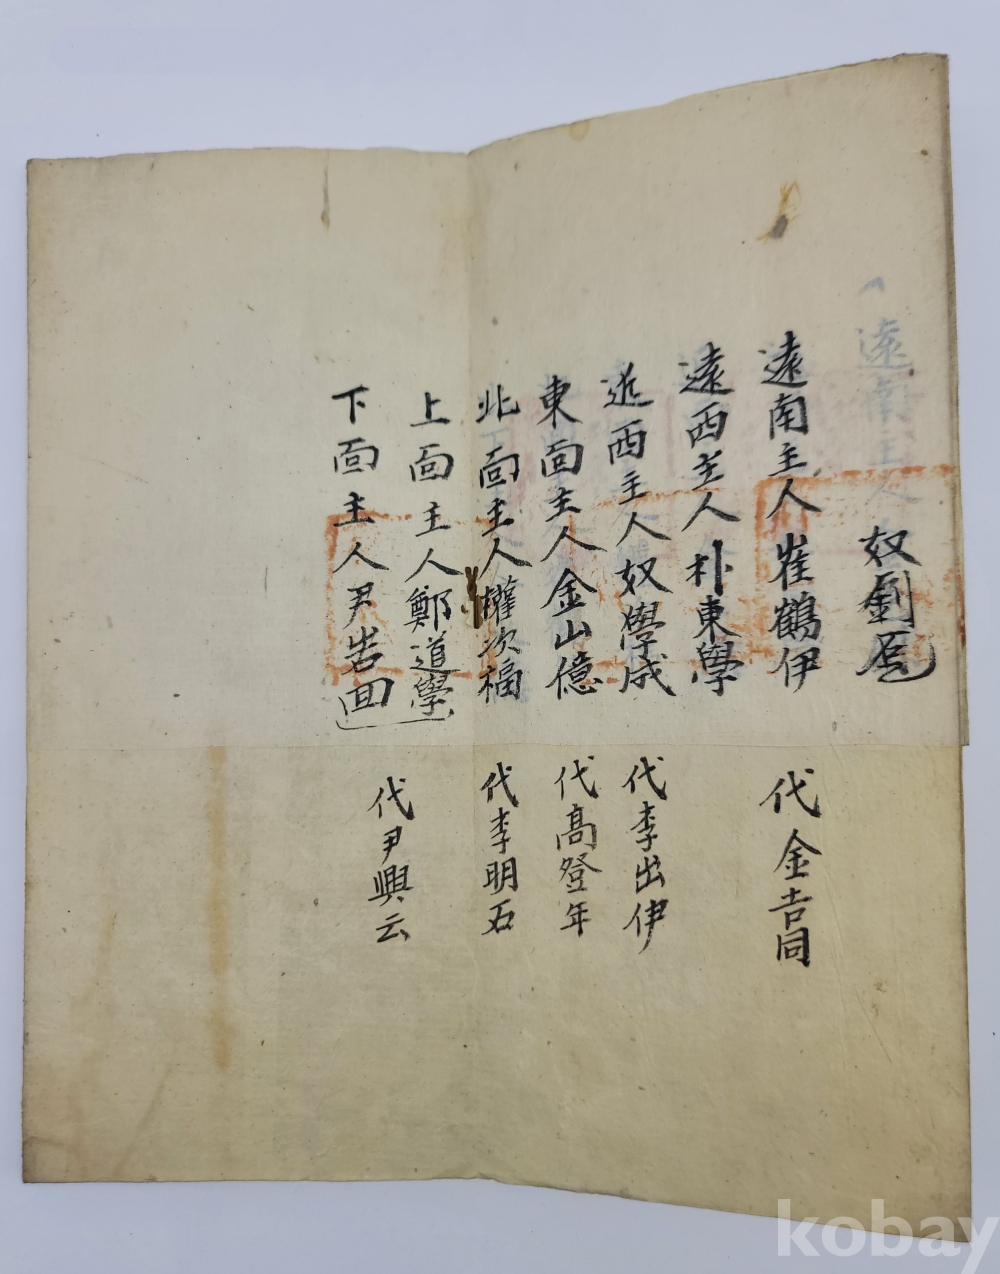 奴劉
遠南主人崔鶴伊
代金吉同
遠西主人朴東學
近西主人奴學成
代李出伊
東面主人金山億
代高登年
北面主人權次福
代李明石
上面主人鄭道學
下面主人尹岩回
代尹興云
遠南主人
kobay